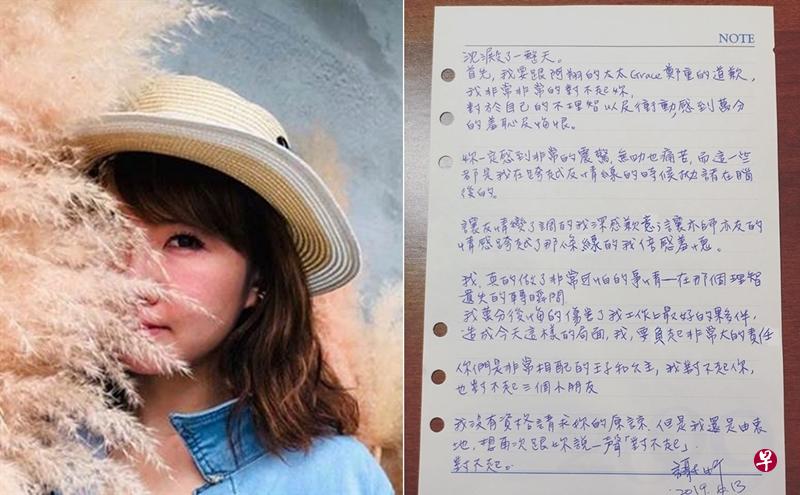 NOTE
沈澱了一整天。
首先,我要跟阿翔的太太Grace鄭重的道歉,
我非常非常的對不起妳,
對於自己的不理智以及衝動,感到萬分
的羞恥及悔恨。
妳一定感到非常的震驚,無助也痛苦,而這一些
都是我在跨越友情線的時候拋諸在腦
後的。
讓友情變了調的我深感歉意;讓亦師亦友的
情感跨越了那條線的我倍感羞愧。
我,真的做了非常可怕的事情—在那個理智
遺失的轉瞬間
我萬分後悔的傷害了我工作上最好的夥伴,
造成今天這樣的局面,我,要負起非常大的責任
你們是非常相配的王子和公主,我對不起你,
也對不起三個小朋友
我沒有資格請求你的原諒,但是我還是由衷
地,想再次跟妳說一聲「對不起」.
對不起。
2019.
13
早